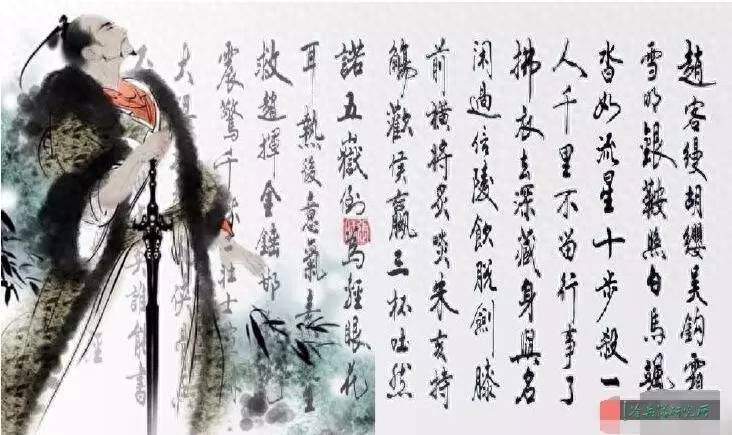 趙客縵胡纓吳鈎霜
雪明銀鞍照白馬颯
沓如流星十步殺一
人千里不留行事了
拂衣去深藏身與名
閑過信陵飲脫劍膝
前橫將炙啖朱亥持
觴勸侯嬴三杯吐然
諾五嶽倒為輕眼花
耳熱後意氣素生
救趙揮金錘邯
震驚千秋二壯士
大俠骨
不英誰能書
經
冷兵器研究所